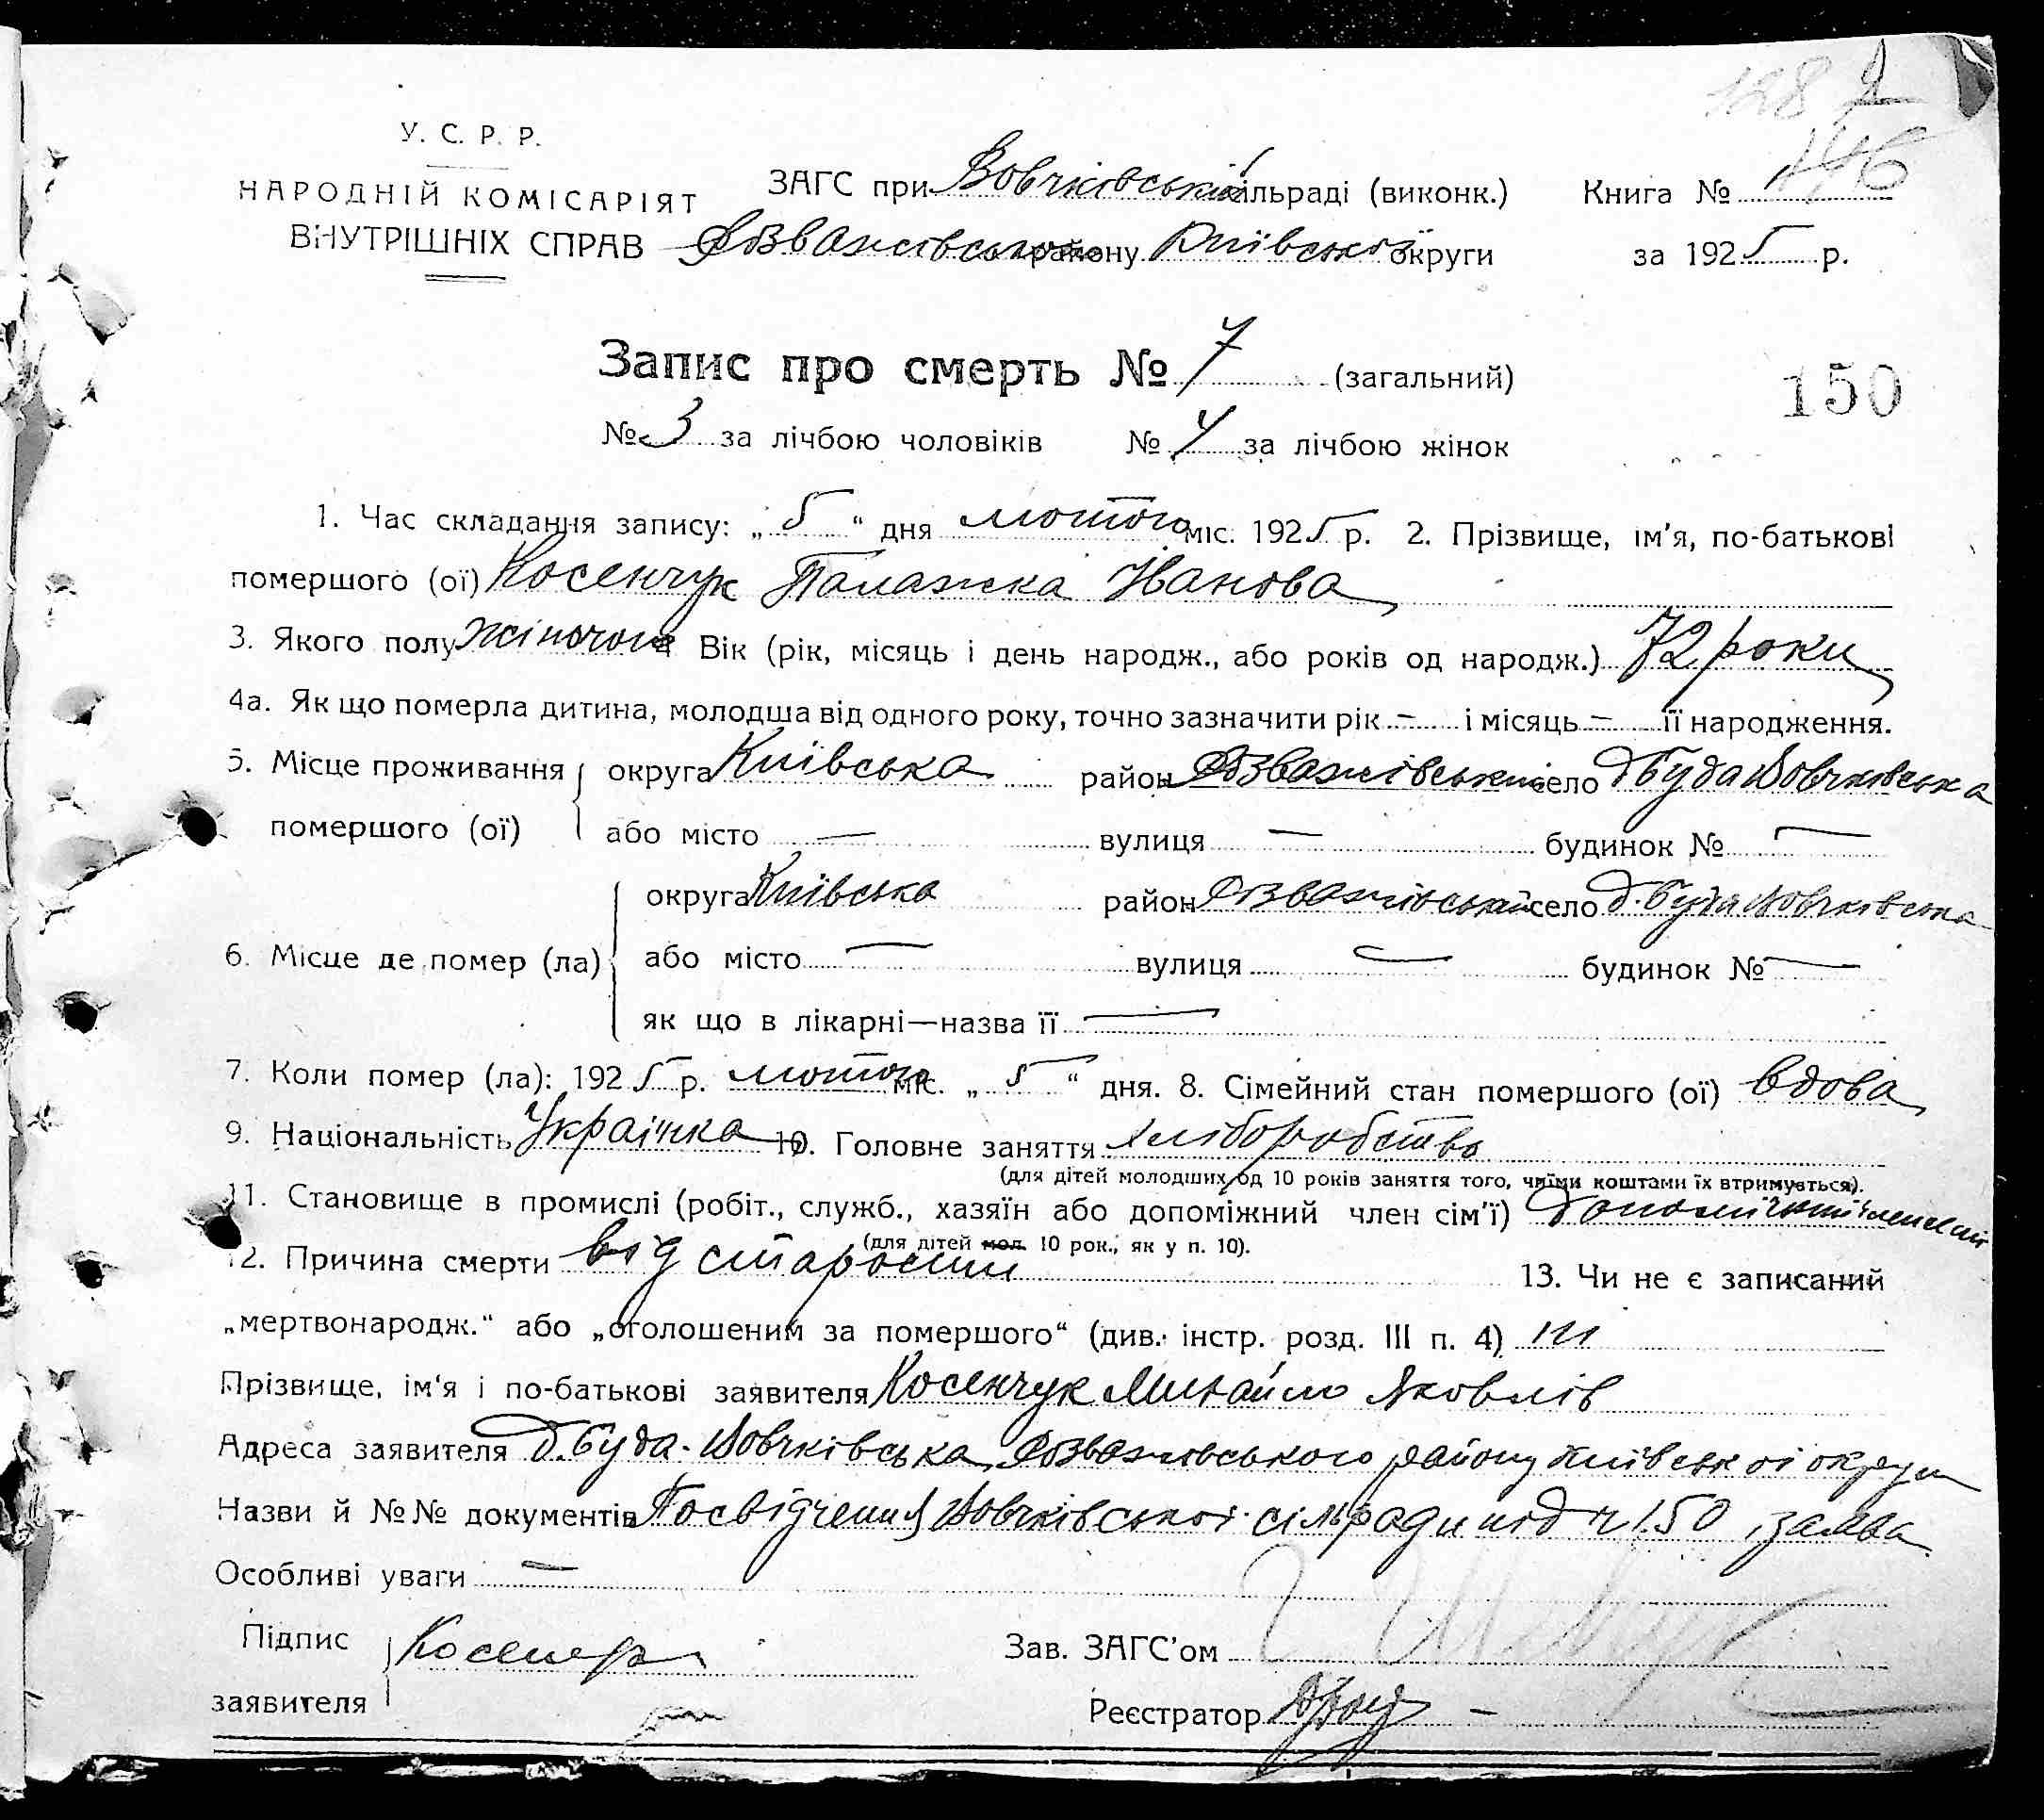 128
146
У. С. Р. Р.
НАРОДНІЙ КОМІСАРІЯТ
ВНУТРІШНІХ СПРАВ
ЗАГС при Вовчківській сільраді (виконк.) Книга №
Розважівського району Київської округи за 1925 р.
Запис про смерть № 7 (загальний)
150
№ 3 за лічбою чоловіків № 4 за лічбою жінок
1. Час складання запису: „5“ дня лютого міс. 1925 р. 2. Прізвище, ім’я, по-батькові
помершого (ої) Косенчук Палажка Іванова
3. Якого полу жіночого 4 Вік (рік, місяць і день народж., або років од народж.) 72 роки
4а. Як що померла дитина, молодша від одного року, точно зазначити рік – і місяць – її народження.
5. Місце проживання округа Київська район Розважівський село д. Буда Вовчківська
помершого (ої) або місто — вулиця — будинок № —
округа Київська район Розважівський село д. Буда Вовчківська
6. Місце де помер (ла) або місто — вулиця — будинок № —
як що в лікарні—назва її —
7. Коли помер (ла): 1925 р. лютого міс. „5“ дня. 8. Сімейний стан помершого (ої) вдова
9. Національність Українка 10. Головне заняття хліборобство
(для дітей молодших од 10 років заняття того, чиїми коштами їх втримується).
11. Становище в промислі (робіт., служб., хазяїн або допоміжний член сім’ї) допоміжний член сімї
(для дітей мол. 10 рок., як у п. 10).
12. Причина смерти від старости 13. Чи не є записаний
„мертвонародж.“ або „оголошеним за помершого“ (див. інстр. розд. III п. 4) ні
Прізвище, ім‘я і по-батькові заявителя Косенчук Михайло Яковлів
Адреса заявителя д. Буда-Вовчківська Розважівського району Київської округи
Назви й №№ документів Посвідчення Вовчківської сільради під ч 150 і заява
Особливі уваги —
Підпис
заявителя Косенчук
Зав. ЗАГС’ом
Реєстратор